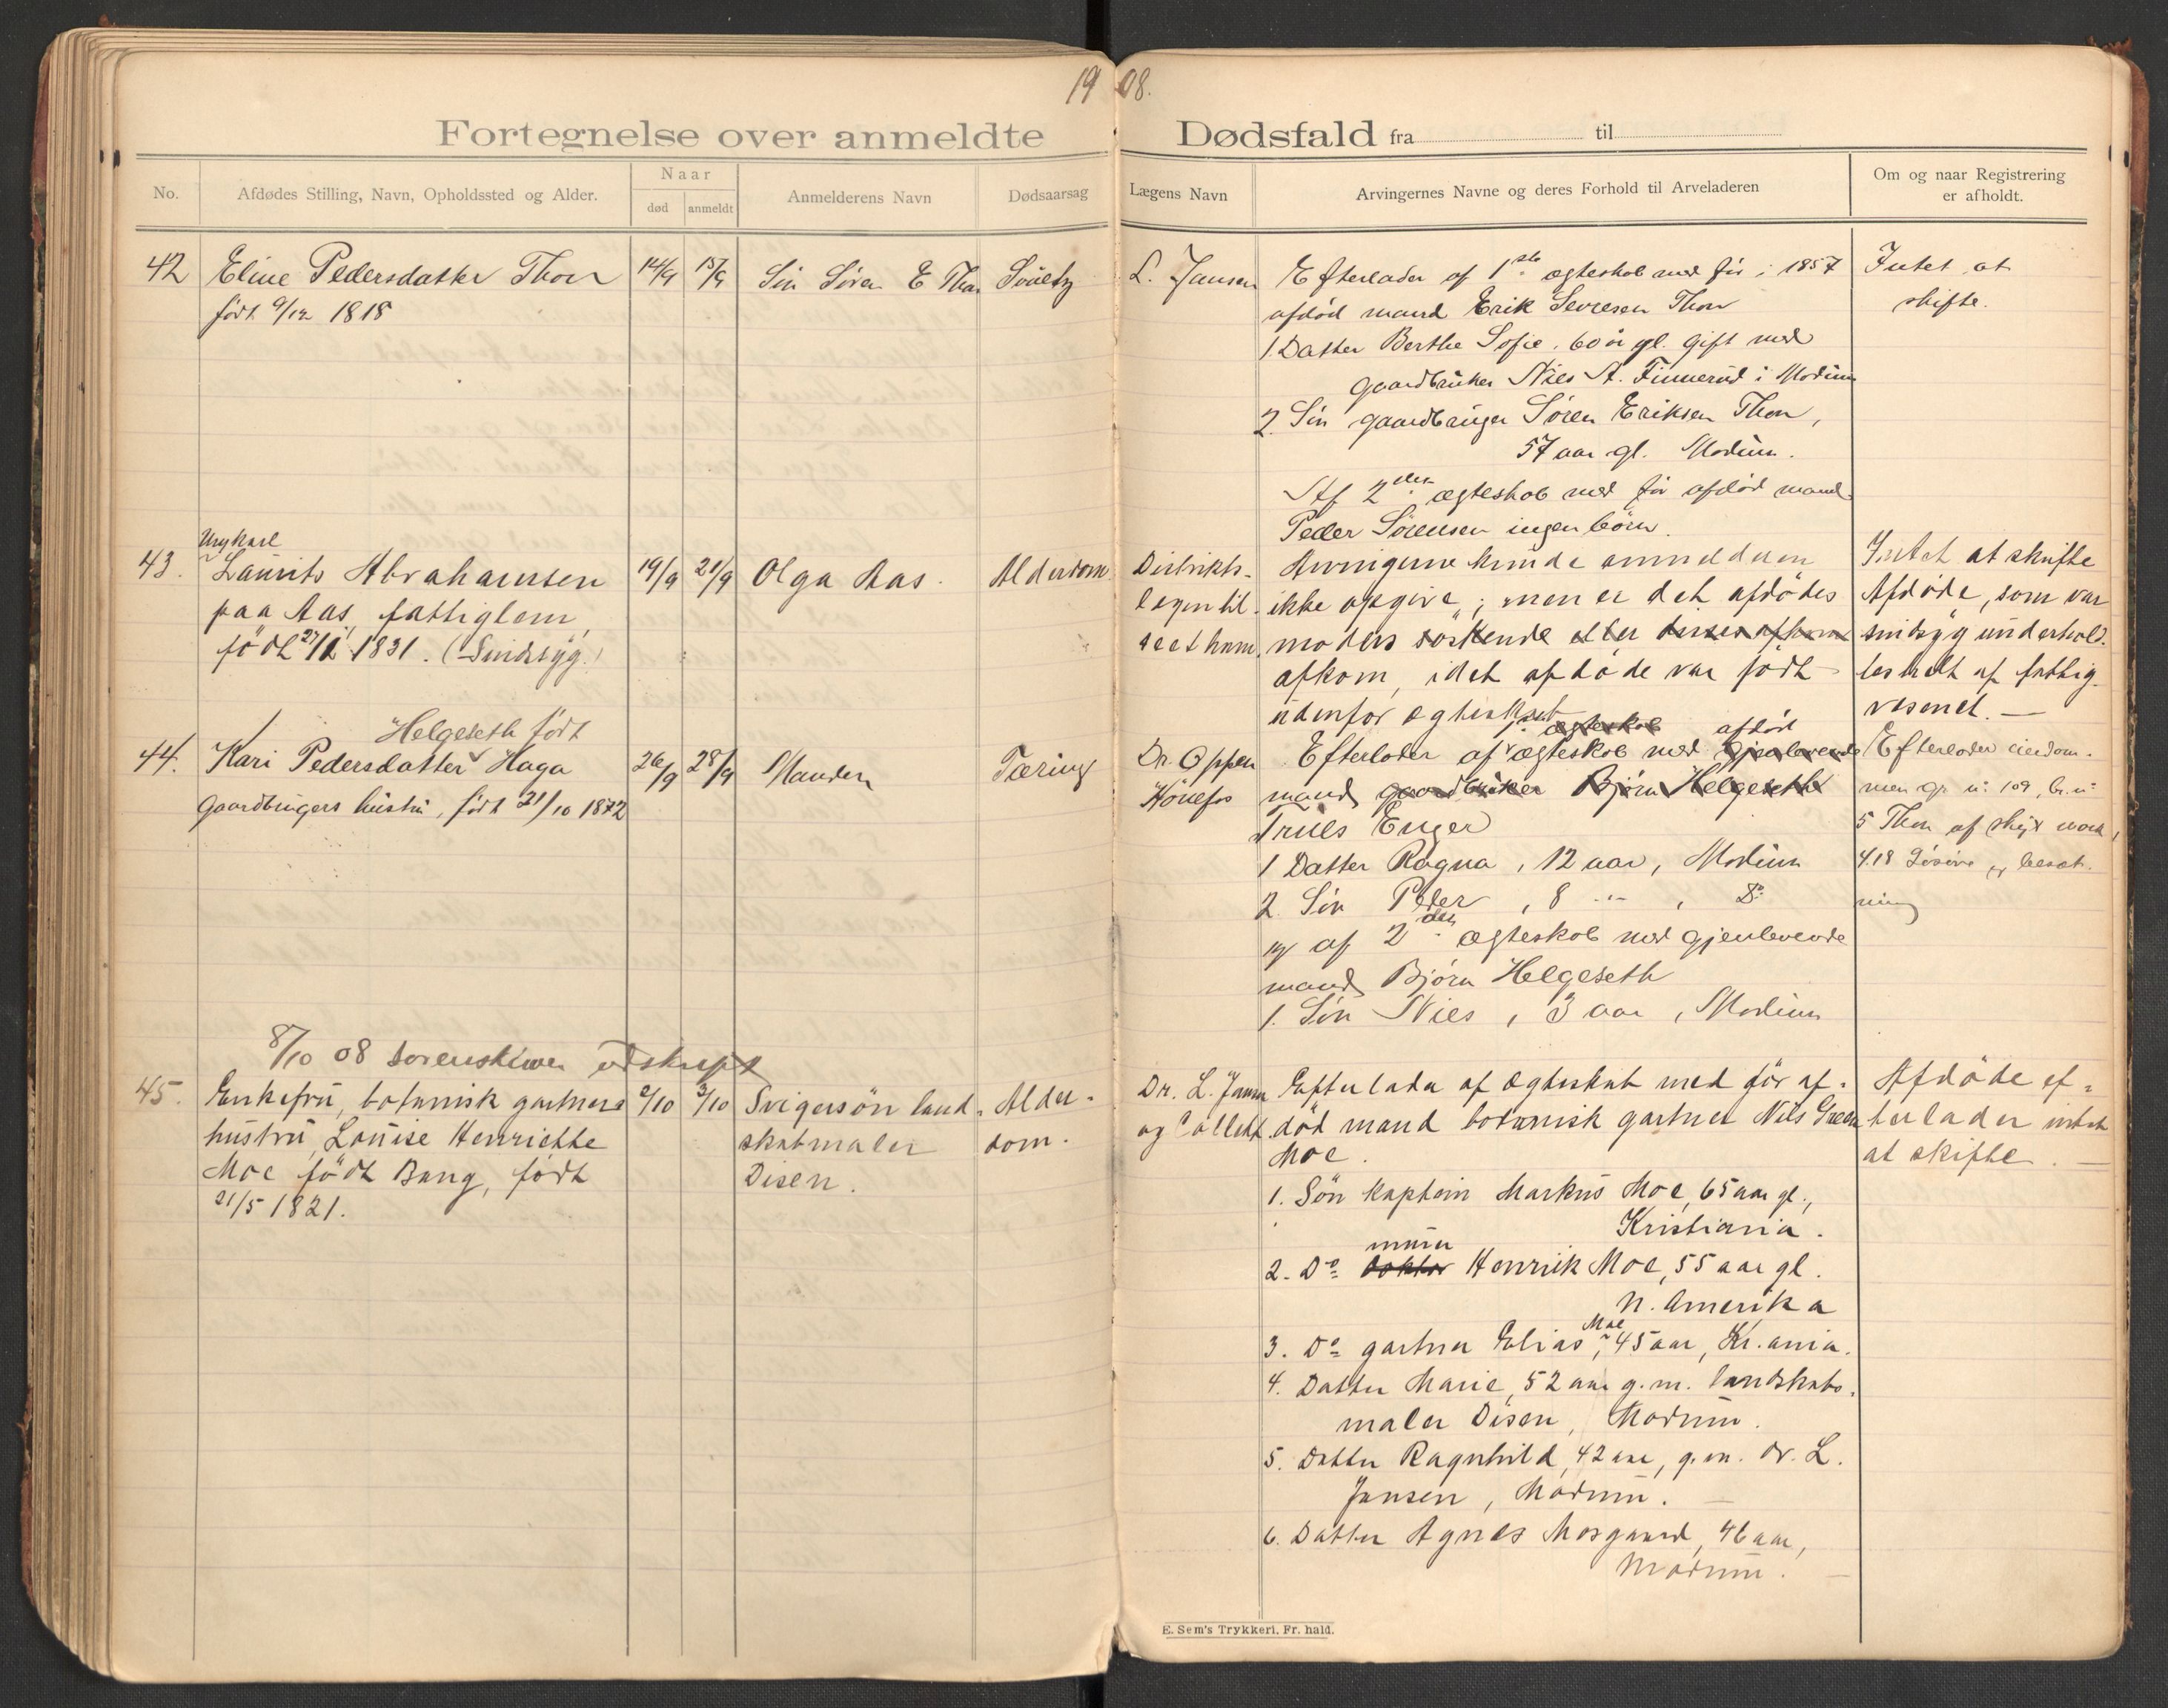 19 08.
Fortegnelse over anmeldte Dødsfald fra til
No.
Afdødes Stilling, Navn, Opholdssted og Alder.
Naar
død
anmeldt
Anmelderens Navn
Dødsaarsag
Lægens Navn
Arvingernes Navne og deres Forhold til Arveladeren
Om og naar Registrering
er afholdt.
42
Eline Pedersdatter Thon
født 9/12 1818
14/9
15/9
Sön Sören E Thon
L. Jansen
Efterlader af 1ste ægteskab med för i 1857
afdød mand Erik Sevresen Thon
1. Datter Berthe Sofie, 60 år gl. gift med
gaardbruker Niels A. Finnerud i Modum
2. Sön gaardbruger Sören Eriksen Thon,
57 aar gl. Modum.
Af 2det ægteskab med för afdöd mand
Peder Sörensen ingen börn.
Intet at
skifte.
43.
Ungkarl
Laurits Abrahamsen
paa Aas, fattiglem,
födt 27/12 1831. (Sindssyg.)
19/9
21/9
Olga Aas.
Alderdom
Distrikts-
lægen til-
seet ham.
Arvingerne kunde anmelderen
ikke opgive; men er det afdödes
moders söskende eller disses afkom
afkom, idet afdöde var födt
udenfor ægteskab
Intet at skifte
Afdöde, som var
sindsyg underhold-
tes helt af fattig-
vesenet. —
44.
Helgeseth født
Kari Pedersdatter Haga
Gaardbrugers hustru, født 21/10 1872
26/9
28/9
Manden
Tæring
Dr. Oppen
Hönefos
1ste ægteskab afdöd
Efterlader af ægteskab med gjenlevende
mand gaardbruker Björn Helgeseth
Truls Enger
1 Datter Ragna, 12 aar, Modum
2. Sön Peder, 8 " , Do
og af 2det ægteskab med gjenlevende
mand Björn Helgeseth
1. Sön Niels, 3 aar, Modum
Efterlader eiendom-
men gr. n: 109, br. n:
5 Thon af skyld mark
4.18 Lösöre og besæt-
ning
8/10 08 Sorenskriver udskrift
45.
Enkefru, botanisk gartners
hustru, Louise Henriette
Moe födt Bang, födt
21/5 1821.
2/10
3/10
Svigersön land-
skabmaler
Disen.
Alder-
dom.
Dr. L. Jansen
og Collett
Efterlader af ægteskab med för af-
död mand botanisk gartner Nils Green
Moe.
1. Sön kaptein Markus Moe, 65 aar gl.,
Kristiania.
2. Do doktor Henrik Moe, 55 aar gl.
N. Amerika
3. Do gartner Elias Moe, 45 aar, Kr.ania.
4. Datter Marie, 52 aar g.m. landskabs-
maler Disen, Modum.
5. Datter Ragnhild, 42 aar, g.m. dr. L.
Jansen, Modum. —
6. Datter Agnes Mosgaard, 46 aar,
Modum. —
Afdöde ef-
terlader intet
at skifte. —
E. Sem's Trykkeri, Fr. hald.